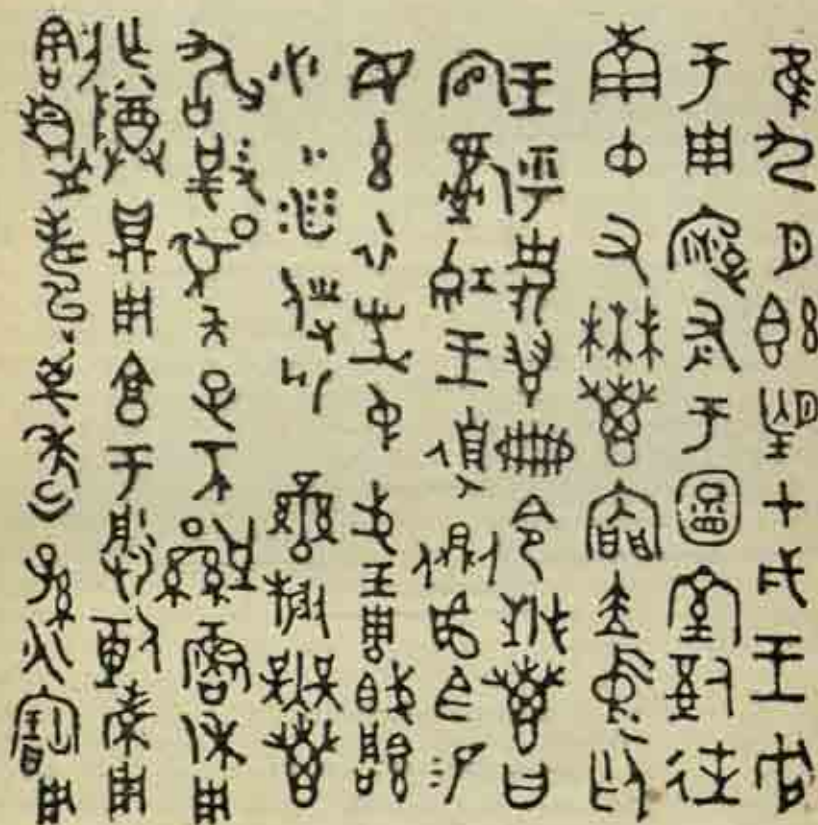 隹九月既望甲戌王各
于周廟于圖室司徒
南中右無叀內門立中廷
王乎史翏冊令無叀曰
官司王遉側虎臣易
女玄衣黹屯戈琱
必彤沙攸勒䜌旂無叀
敢對揚天子不顯魯休用
乍尊鼎用享于朕烈考用
割眉壽萬年子孫永寶用